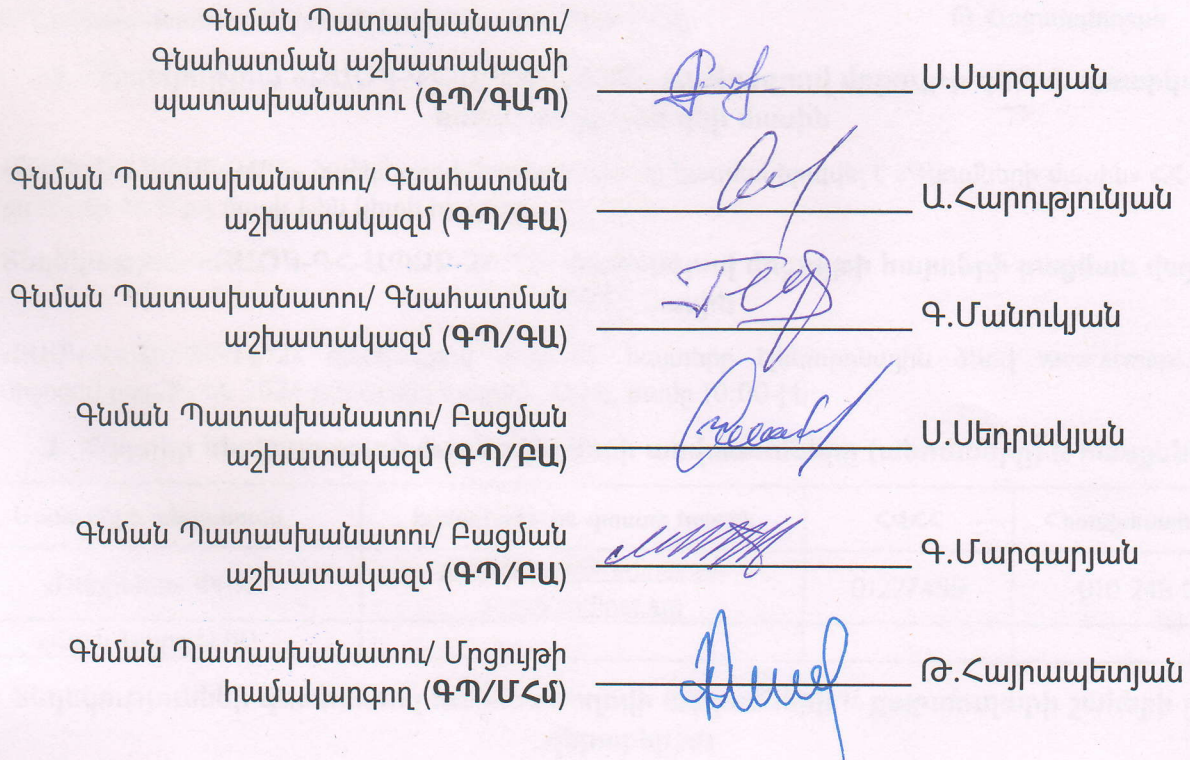 Գնման Պատասխանատու/
Գնահատման աշխատակազմի
պատասխանատու (ԳՊ/ԳԱՊ) Ս.Սարգսյան
Գնման Պատասխանատու/ Գնահատման
աշխատակազմ (ԳՊ/ԳԱ) Ա.Հարությունյան
Գնման Պատասխանատու/ Գնահատման
աշխատակազմ (ԳՊ/ԳԱ) Գ.Մանուկյան
Գնման Պատասխանատու/ Բացման
աշխատակազմ (ԳՊ/ԲԱ) Ս.Սեդրակյան
Գնման Պատասխանատու/ Բացման
աշխատակազմ (ԳՊ/ԲԱ) Գ.Մարգարյան
Գնման Պատասխանատու/ Մրցույթի
համակարգող (ԳՊ/ՄՀմ) Թ.Հայրապետյան